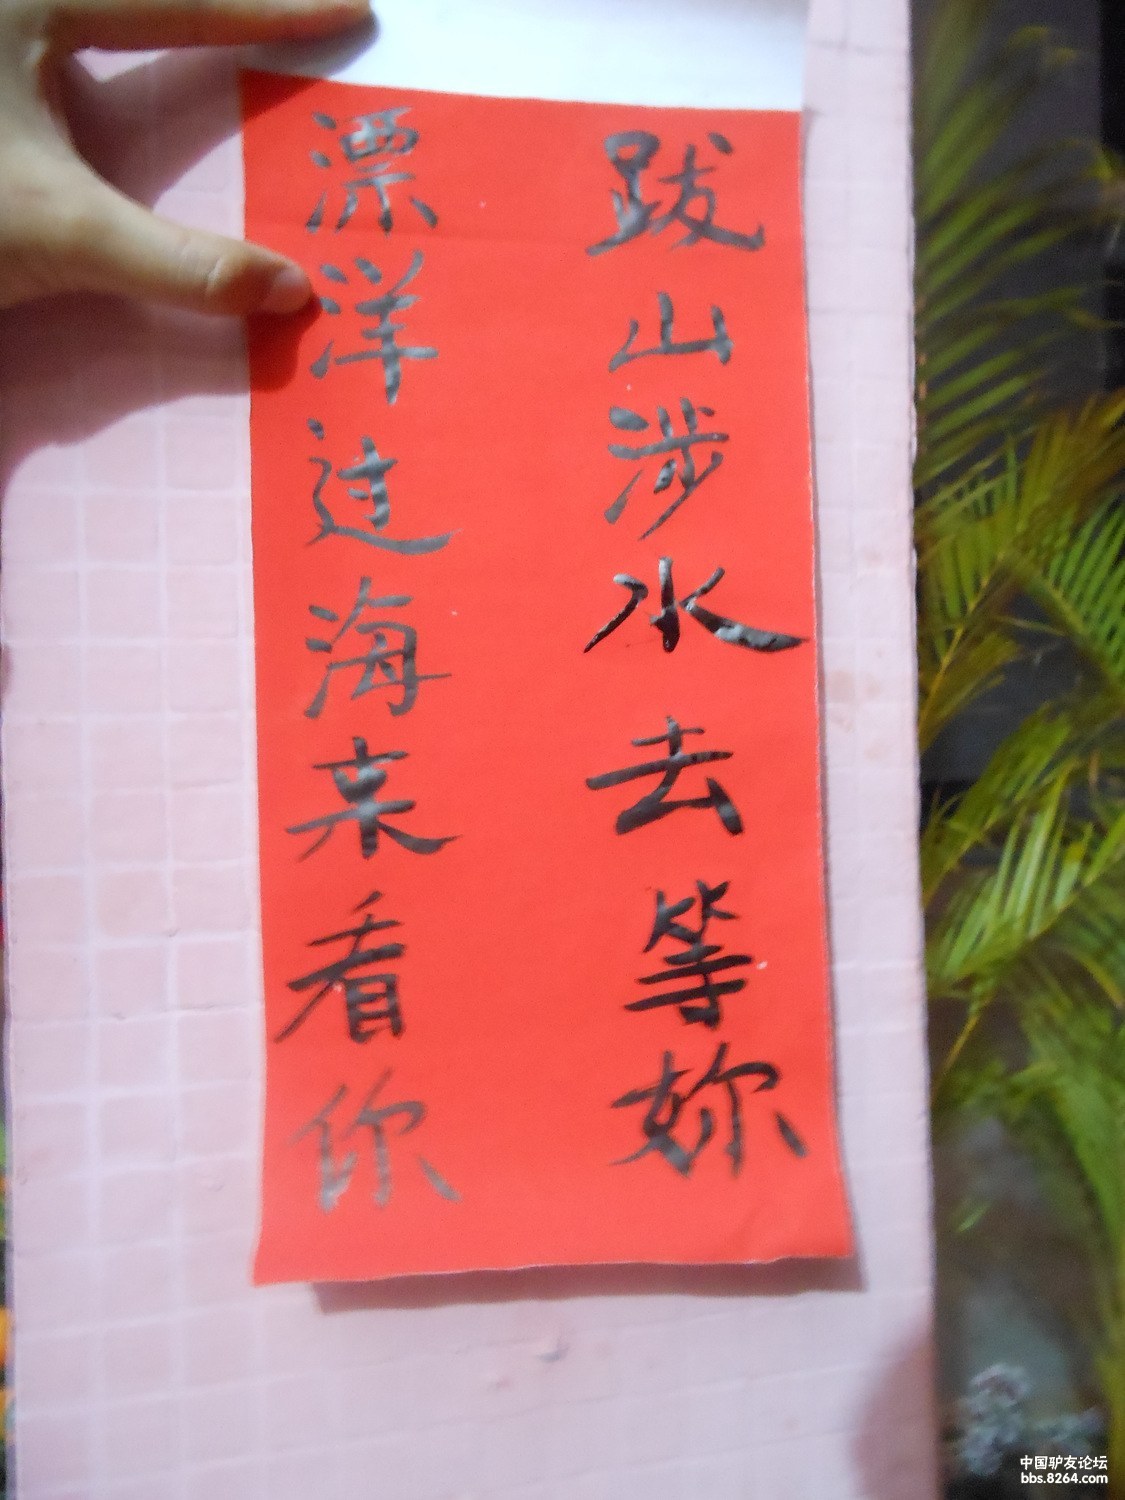 跋山涉水去等妳
漂洋过海来看你
中国驴友论坛
bbs.8264.com